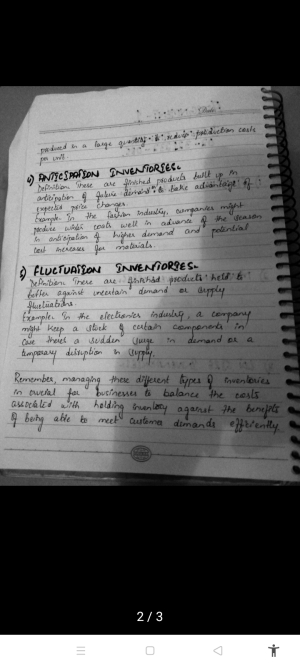 produced in a large quantity to reduce production costs
per unit.
ANTICIPATION INVENTORIES:
Definition: These are finished products built up in
anticipation of future demand to take advantage of
expected price changes.
Example: In the fashion industry, companies might
produce winter coats well in advance of the season
in anticipation of higher demand and potential
cost increases for materials.
FLUCTUATION INVENTORIES:
Definition: These are finished products held to
buffer against uncertain demand or supply
fluctuations.
Example: In the electronics industry, a company
might keep a stock of certain components in
case there's a sudden surge in demand or a
temporary disruption in supply.
Remember, managing these different types of inventories
is crucial for businesses to balance the costs
associated with holding inventory against the benefits
of being able to meet customer demands efficiently.
2 / 3